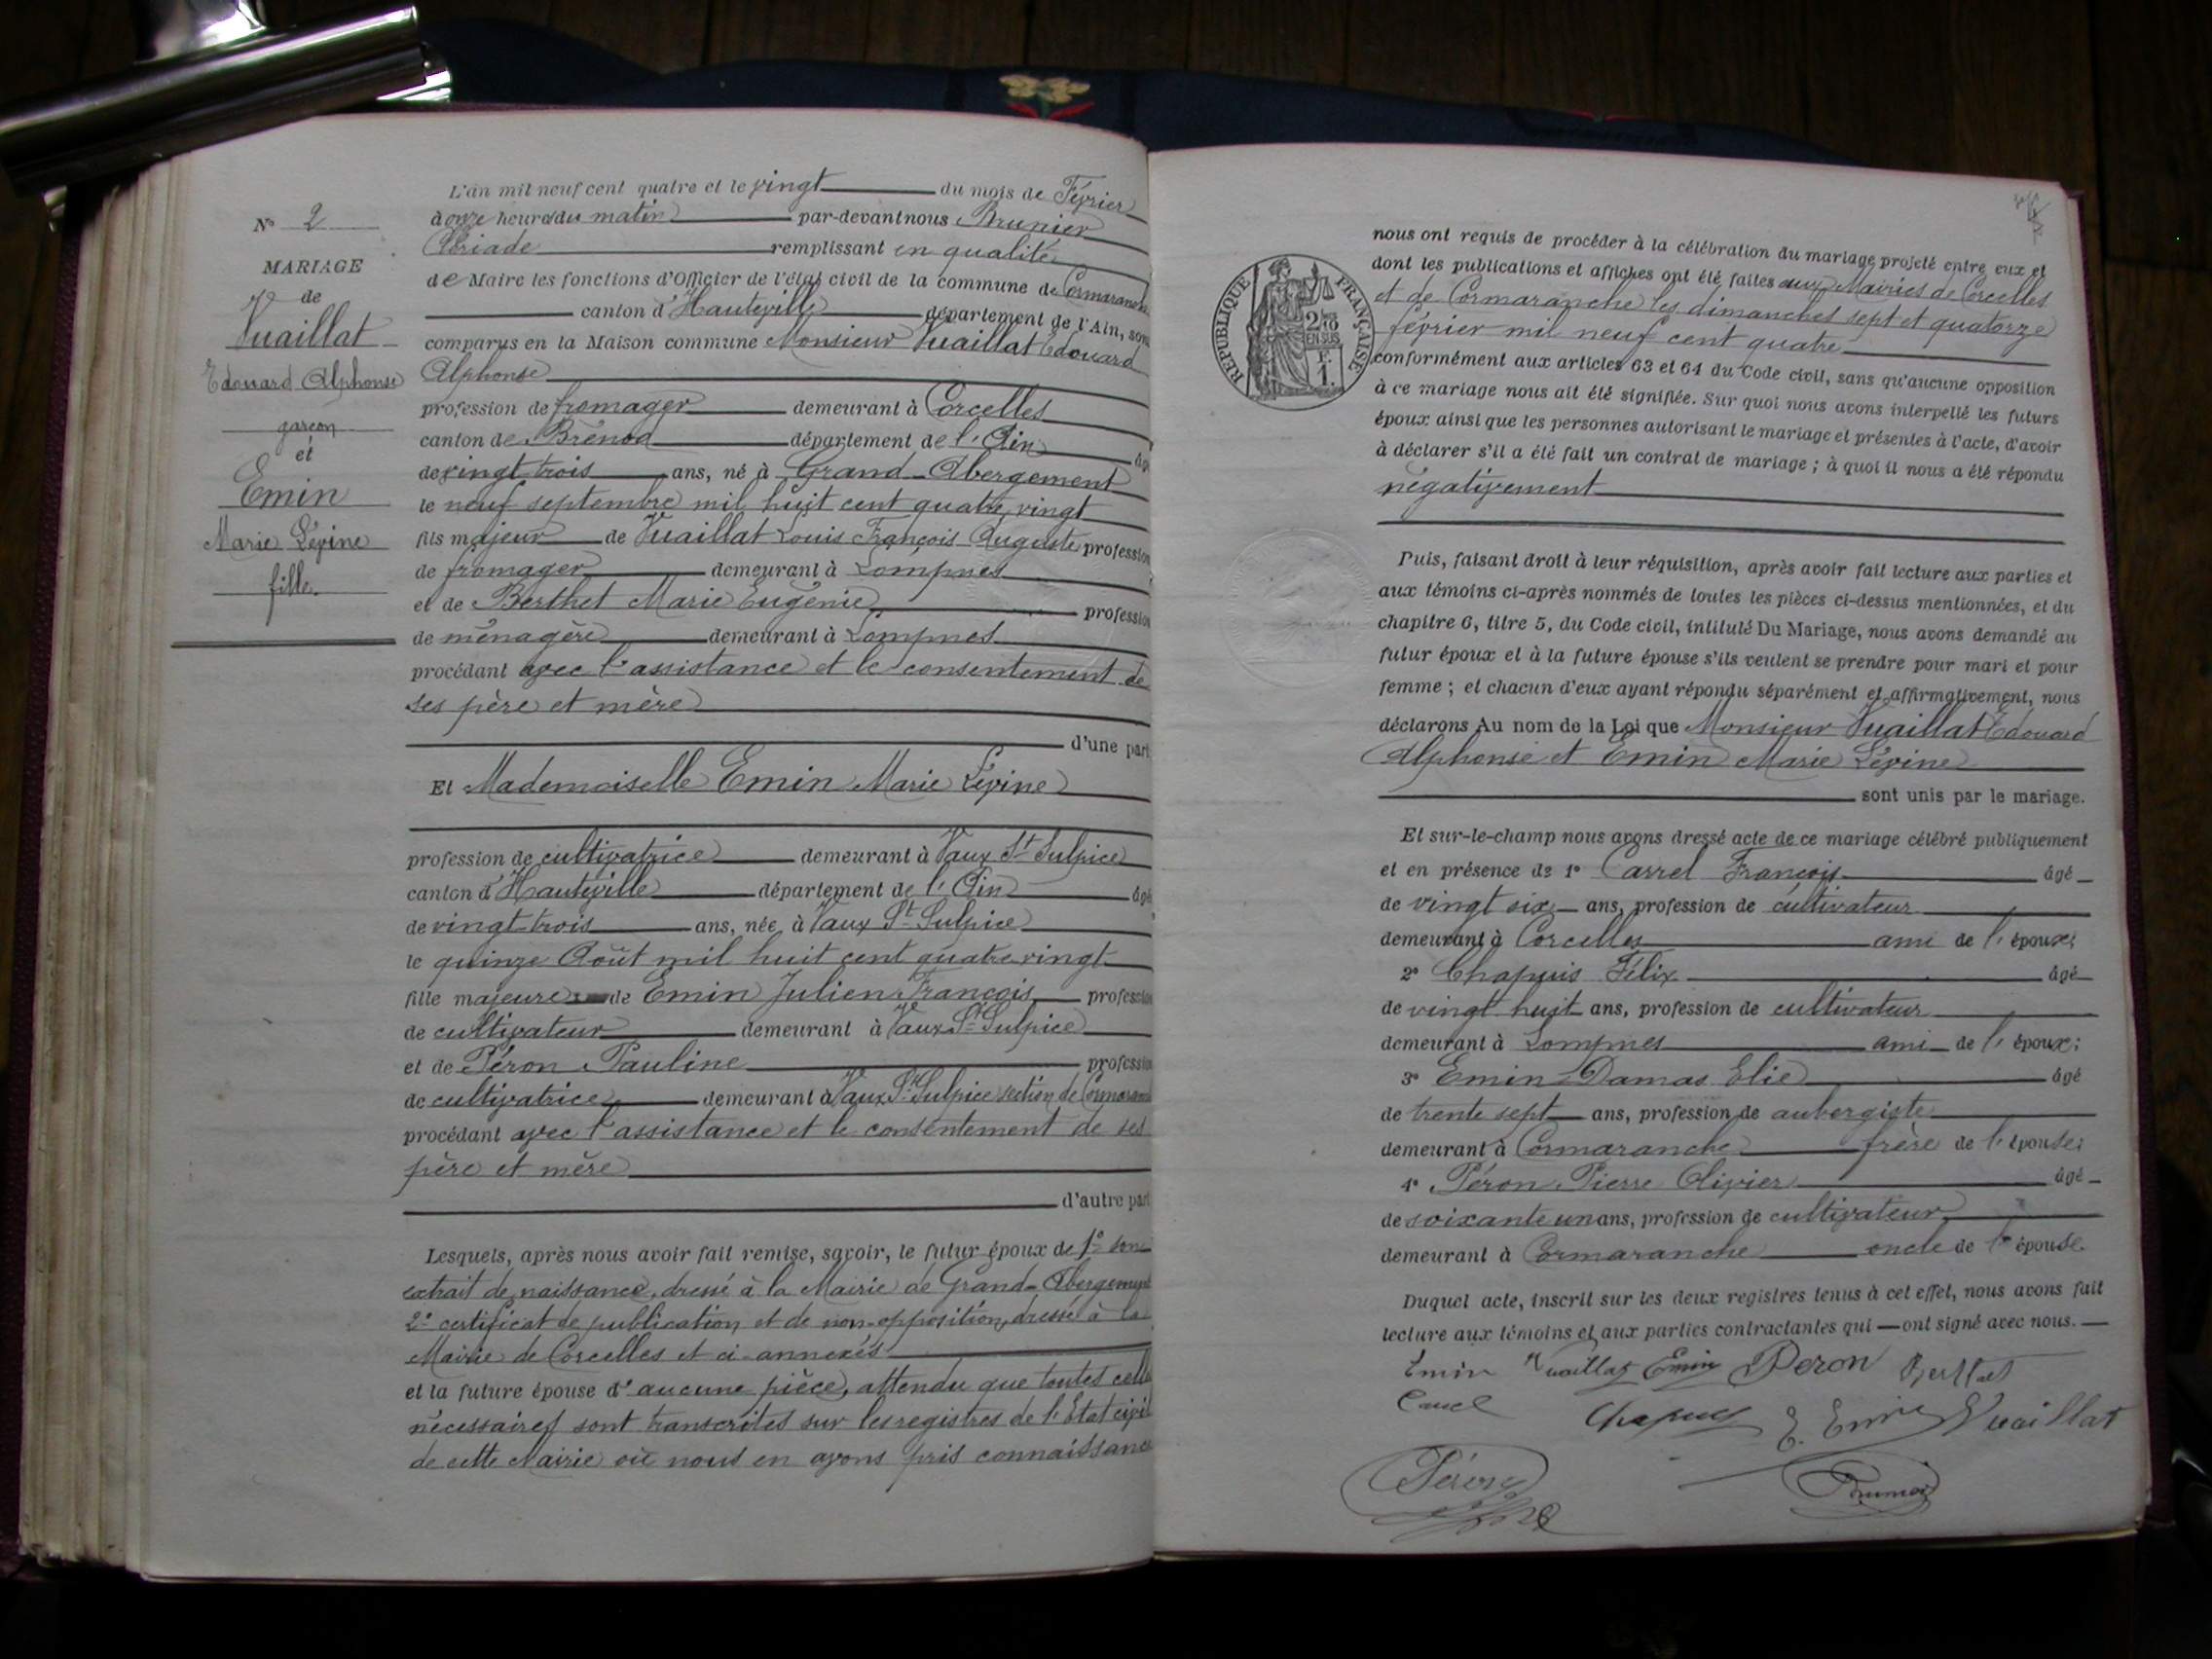 N° 2
MARIAGE
de
Vuaillat
Edouard Alphonse
garçon
et
Emin
Marie Lévine
fille.
L'an mil neuf cent quatre et le vingt du mois de Février
à onze heures du matin par-devant nous Brunier
remplissant en qualité
de Maire les fonctions d'Officier de l'état civil de la commune de Cormaranche
canton d'Hauteville département de l'Ain, sont
comparus en la Maison commune Monsieur Vuaillat Edouard
Alphonse
profession de fromager demeurant à Corcelles
canton de Brénod département de l'Ain âgé
de vingt trois ans, né à Grand-Abergement
le neuf septembre mil huit cent quatre vingt
fils majeur de Vuaillat Louis François Auguste profession
de fromager demeurant à Lompnes
et de Berthet Marie Eugénie profession
de ménagère demeurant à Lompnes
procédant avec l'assistance et le consentement de
ses père et mère
d'une part
Et Mademoiselle Emin Marie Lévine
profession de cultivatrice demeurant à Vaux St Sulpice
canton d'Hauteville département de l'Ain âgé
de vingt trois ans, née à Vaux St Sulpice
le quinze Août mil huit cent quatre vingt
fille majeure de Emin Julien François profession
de cultivateur demeurant à Vaux St Sulpice
et de Péron Pauline profession
de cultivatrice demeurant à Vaux St Sulpice section de Cormaranche
procédant avec l'assistance et le consentement de ses
père et mère
d'autre part
Lesquels, après nous avoir fait remise, savoir, le futur époux de 1° son
extrait de naissance, dressé à la Mairie de Grand-Abergement
2° certificat de publication et de non-opposition, dressé à la
Mairie de Corcelles et ci-annexés
et la future épouse d'aucune pièce, attendu que toutes celles
nécessaires sont transcrites sur les registres de l'Etat civil
de cette Mairie où nous en avons pris connaissance
RÉPUBLIQUE FRANÇAISE
2/10
EN SUS
F.
1.
nous ont requis de procéder à la célébration du mariage projeté entre eux et
dont les publications et affiches ont été faites aux Mairies de Corcelles
et de Cormaranche les dimanches sept et quatorze
février mil neuf cent quatre
conformément aux articles 63 et 64 du Code civil, sans qu'aucune opposition
à ce mariage nous ait été signifiée. Sur quoi nous avons interpellé les futurs
époux ainsi que les personnes autorisant le mariage et présentes à l'acte, d'avoir
à déclarer s'il a été fait un contrat de mariage ; à quoi il nous a été répondu
négativement
Puis, faisant droit à leur réquisition, après avoir fait lecture aux parties et
aux témoins ci-après nommés de toutes les pièces ci-dessus mentionnées, et du
chapitre 6, titre 5, du Code civil, intitulé Du Mariage, nous avons demandé au
futur époux et à la future épouse s'ils veulent se prendre pour mari et pour
femme ; et chacun d'eux ayant répondu séparément et affirmativement, nous
déclarons Au nom de la Loi que Monsieur Vuaillat Edouard
Alphonse et Emin Marie Lévine
sont unis par le mariage.
Et sur-le-champ nous avons dressé acte de ce mariage célébré publiquement
et en présence de 1° Carrel François âgé
de vingt six ans, profession de cultivateur
demeurant à Corcelles ami de l'époux;
2° Chapuis Félix âgé
de vingt huit ans, profession de cultivateur
demeurant à Lompnes ami de l'époux;
3° Emin Damas Elie âgé
de trente sept ans, profession de aubergiste
demeurant à Cormaranche frère de l'épouse;
4° Péron Pierre Olivier âgé
de soixante un ans, profession de cultivateur
demeurant à Cormaranche oncle de l'épouse.
Duquel acte, inscrit sur les deux registres tenus à cet effet, nous avons fait
lecture aux témoins et aux parties contractantes qui ont signé avec nous.
Emin Vuaillat Emin Peron Berthet
Carrel Chapuis E. Emin Vuaillat
Péron Brunier